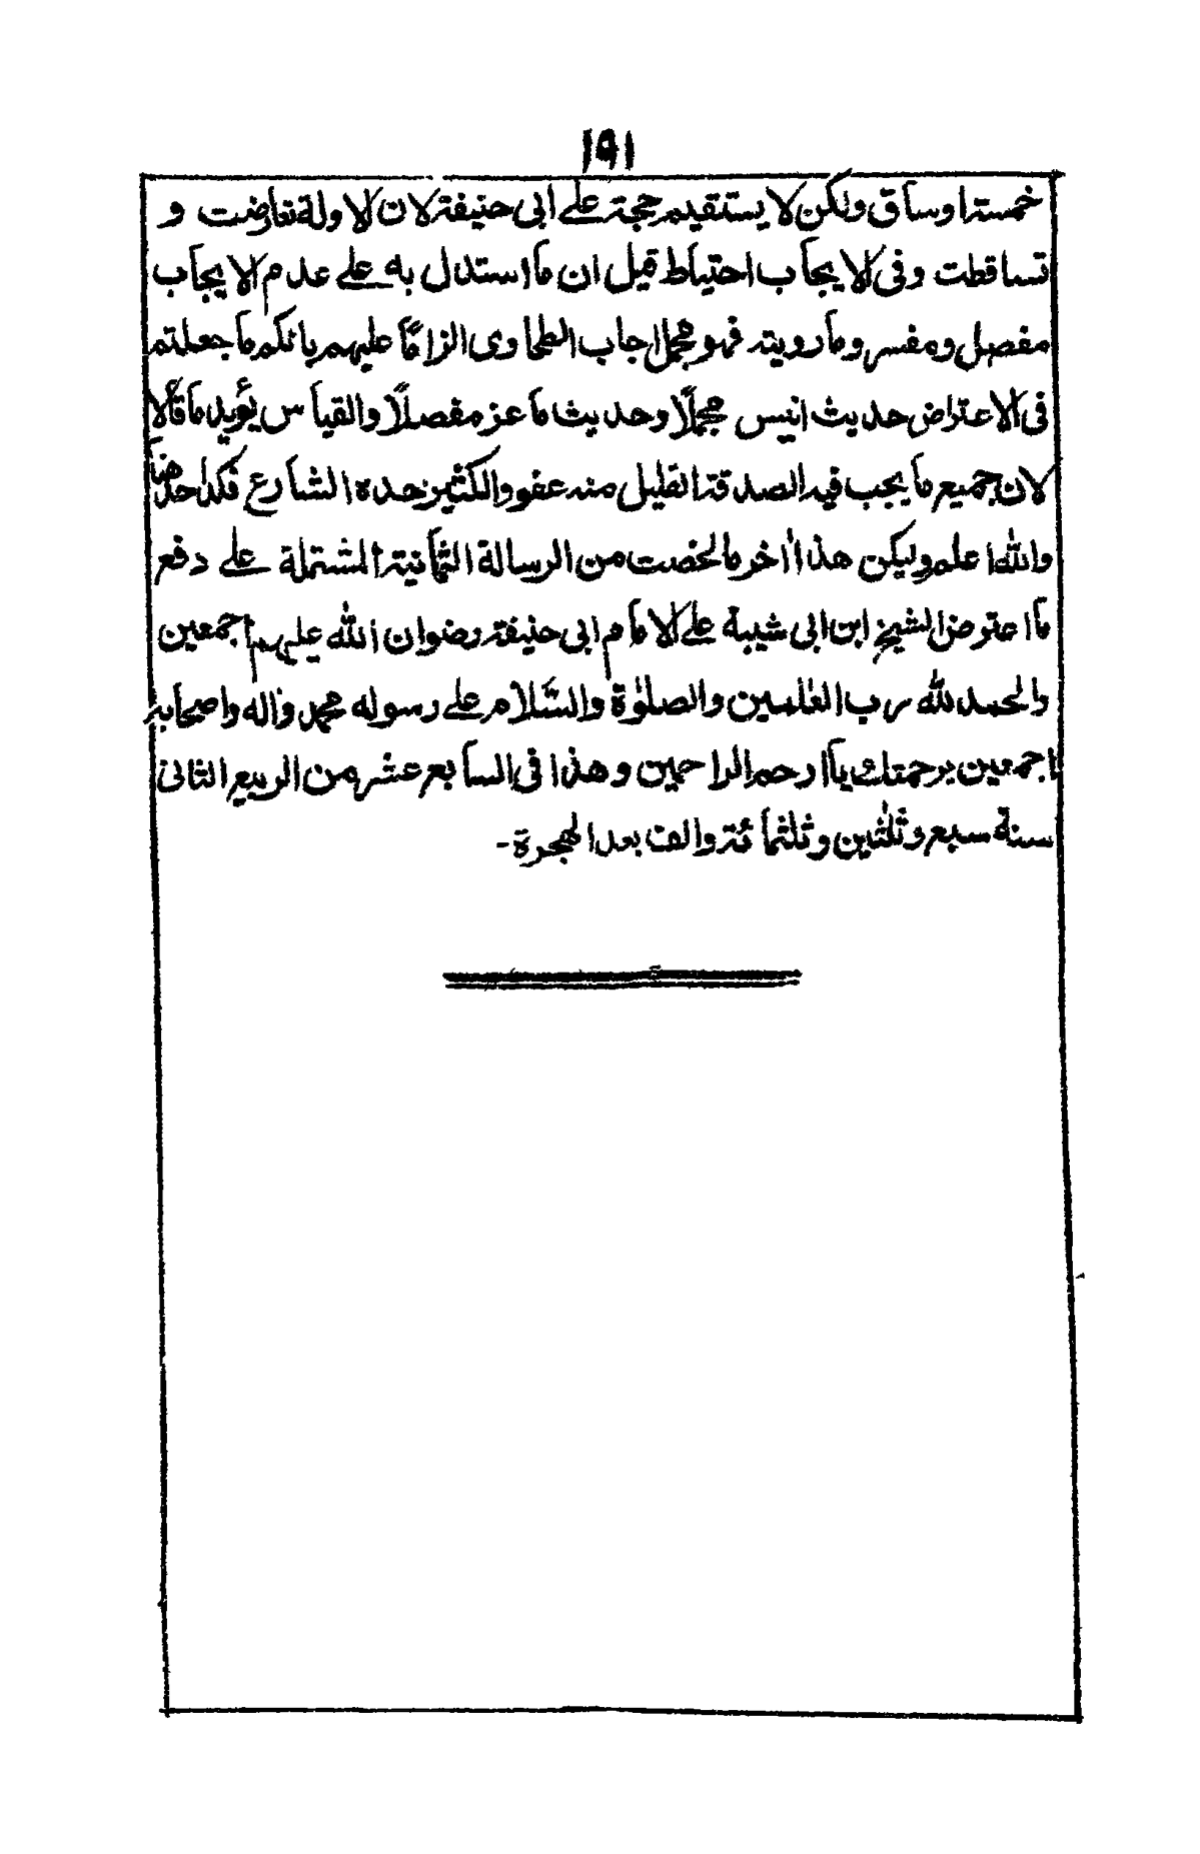 ١٩١
خمسة اوساق ولكن لا يستقيم حجة على ابى حنيفة لان الاولة تعارضت و
تساقطت وفى الايجاب احتياط قيل ان ما استدل به على عدم الايجاب
مفصل ومفسر وما رويته فهو مجمل اجاب الطحاوى الزامًا عليهم بانكم ما جعلتم
فى الاعتراض حديث انيس مجملًا وحديث ماعز مفصلًا والقياس يؤيد ما قالا
لان جميع ما يجب فيه الصدقة القليل منه عفو والكثير حده الشارع فكذا حد هنا
والله اعلم وليكن هذا اٰخر ما لخصت من الرسالة الثمانية المشتملة على دفع
ما اعترض الشيخ ابن ابى شيبة على الامام ابى حنيفة رضوان الله عليهم اجمعين
والحمد لله رب العٰلمين والصلوٰة والسَّلام على رسوله محمد واٰله واصحابه
اجمعين برحمتك يا ارحم الراحمين وهذا فى السابع عشر من الربيع الثانى
سنة سبع وثلٰثين وثلثمائة والف بعد الهجرة-